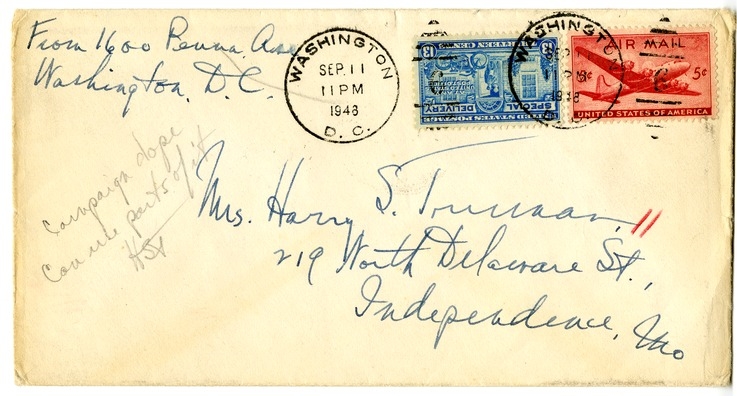 From 1600 Penna. Ave
Washington, D.C.
WASHINGTON
SEP. 11
11 PM
1946
D. C.
13
SPECIAL DELIVERY
UNITED STATES POSTAGE
WASHINGTON
SEP
11 PM
1946
AIR MAIL
5¢
UNITED STATES OF AMERICA
Campaign dope
Can use parts of it
HST
Mrs. Harry S. Truman,
219 North Delaware St.,
Independence, Mo